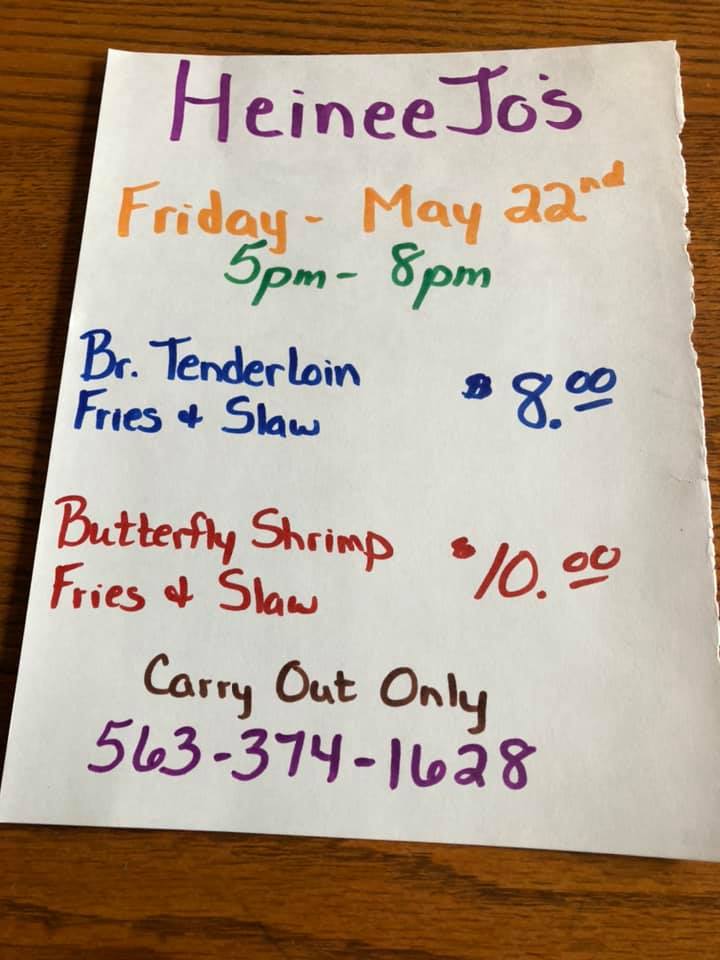 HeineeJo's
Friday - May 22nd
5pm - 8pm
Br. Tenderloin
Fries & Slaw
$8.00
Butterfly Shrimp
Fries & Slaw
$10.00
Carry Out Only
563-374-1628